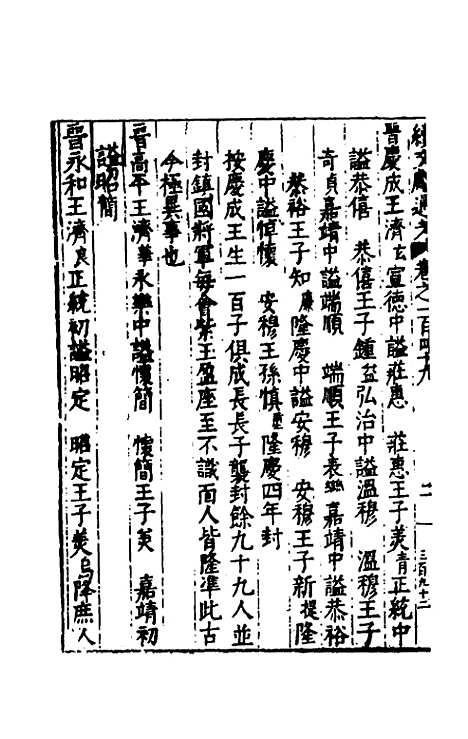 續文獻通考卷之一百四十九 二 三百九十二
晉慶成王濟玄宣德中謚莊惠 莊惠王子美青正統中
謚恭僖 恭僖王子鍾鎰弘治中謚溫穆 溫穆王子
奇貞嘉靖中謚端順 端順王子表欒嘉靖中謚恭裕
恭裕王子知㸅隆慶中謚安穆 安穆王子新提隆
慶中謚悼懷 安穆王孫慎鍾隆慶四年封
按慶成王生一百子俱成長長子襲封餘九十九人並
封鎮國將軍每會紫王盈座至不識面人皆隆準此古
今極異事也
晉高平王濟華永樂中謚懷簡 懷簡王子美 嘉靖初
謚昭簡
晉永和王濟烺正統初謚昭定 昭定王子美塢降庶人